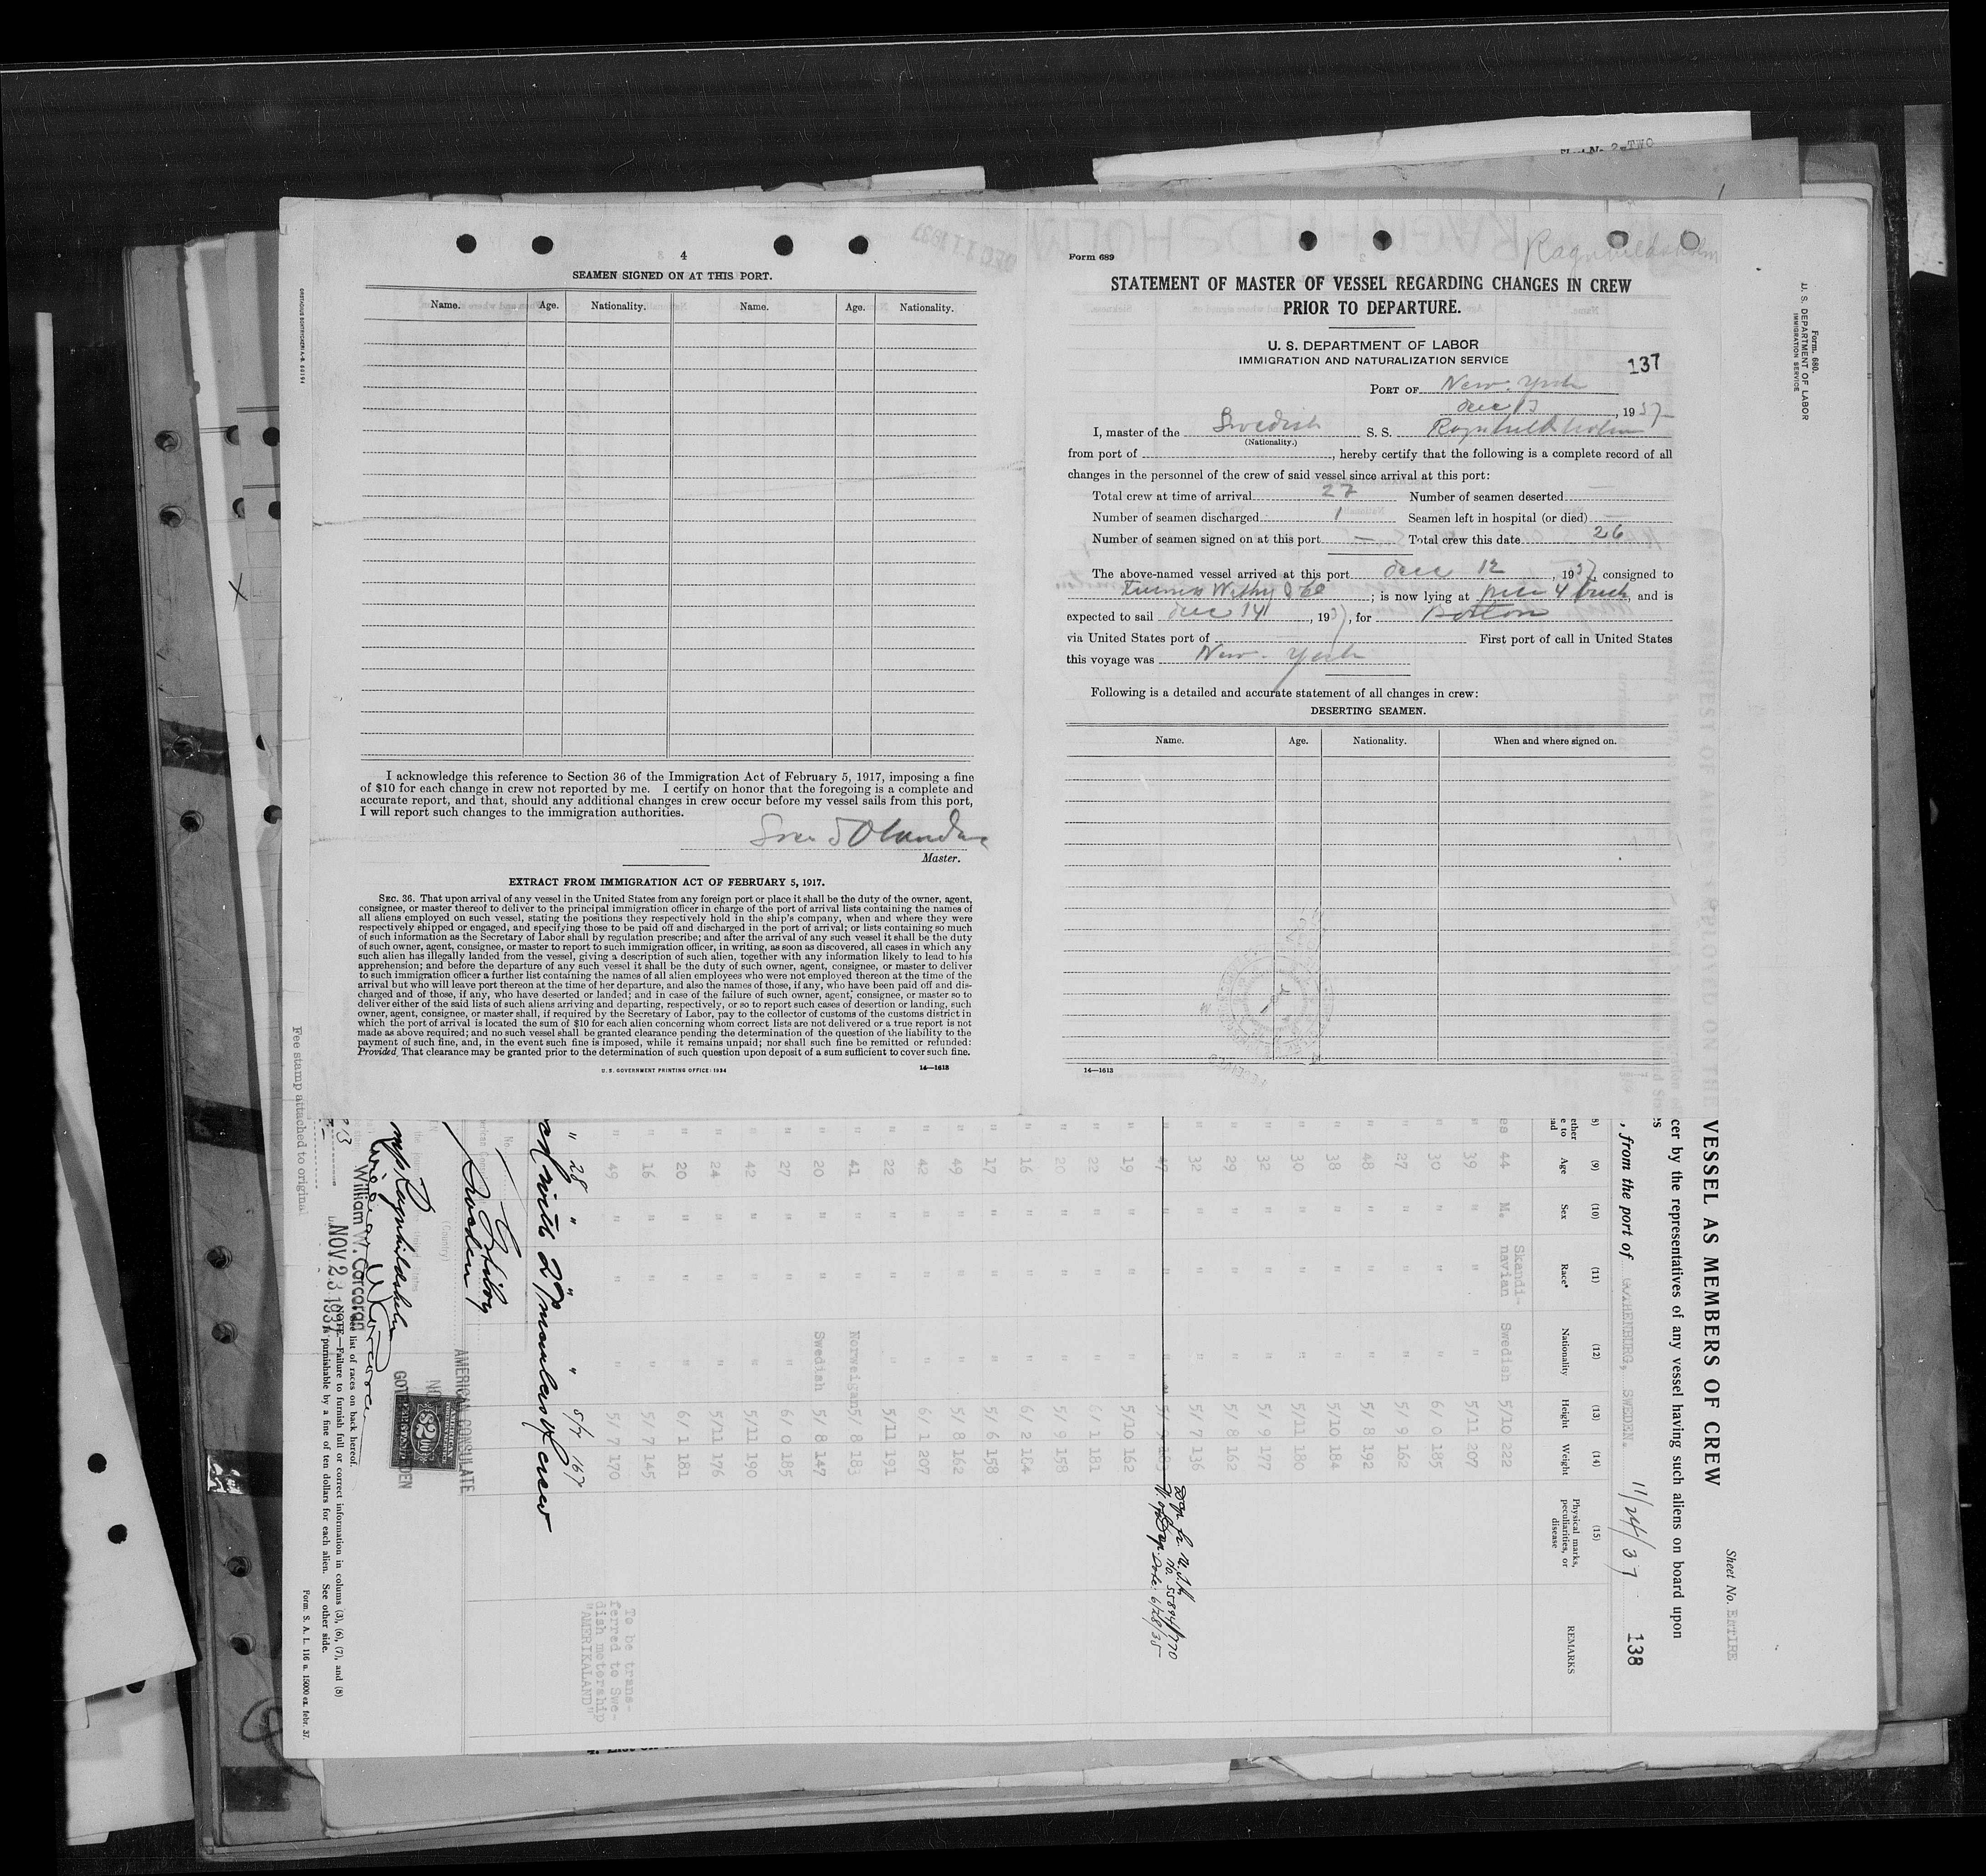 4
SEAMEN SIGNED ON AT THIS PORT.
Name. Age. Nationality. Name. Age. Nationality.
I acknowledge this reference to Section 36 of the Immigration Act of February 5, 1917, imposing a fine
of $10 for each change in crew not reported by me. I certify on honor that the foregoing is a complete and
accurate report, and that, should any additional changes in crew occur before my vessel sails from this port,
I will report such changes to the immigration authorities.
Master.
EXTRACT FROM IMMIGRATION ACT OF FEBRUARY 5, 1917.
SEC. 36. That upon arrival of any vessel in the United States from any foreign port or place it shall be the duty of the owner, agent,
consignee, or master thereof to deliver to the principal immigration officer in charge of the port of arrival lists containing the names of
all aliens employed on such vessel, stating the positions they respectively hold in the ship's company, when and where they were
respectively shipped or engaged, and specifying those to be paid off and discharged in the port of arrival; or lists containing so much
of such information as the Secretary of Labor shall by regulation prescribe; and after the arrival of any such vessel it shall be the duty
of such owner, agent, consignee, or master to report to such immigration officer, in writing, as soon as discovered, all cases in which any
such alien has illegally landed from the vessel, giving a description of such alien, together with any information likely to lead to his
apprehension; and before the departure of any such vessel it shall be the duty of such owner, agent, consignee, or master to deliver
to such immigration officer a further list containing the names of all alien employees who were not employed thereon at the time of the
arrival but who will leave port thereon at the time of her departure, and also the names of those, if any, who have been paid off and dis-
charged and of those, if any, who have deserted or landed; and in case of the failure of such owner, agent, consignee, or master so to
deliver either of the said lists of such aliens arriving and departing, respectively, or so to report such cases of desertion or landing, such
owner, agent, consignee, or master shall, if required by the Secretary of Labor, pay to the collector of customs of the customs district in
which the port of arrival is located the sum of $10 for each alien concerning whom correct lists are not delivered or a true report is not
made as above required; and no such vessel shall be granted clearance pending the determination of the question of the liability to the
payment of such fine, and, in the event such fine is imposed, while it remains unpaid; nor shall such fine be remitted or refunded:
Provided, That clearance may be granted prior to the determination of such question upon deposit of a sum sufficient to cover such fine.
U. S. GOVERNMENT PRINTING OFFICE: 1934 14—1613
Form 689
Ragnhildsholm
STATEMENT OF MASTER OF VESSEL REGARDING CHANGES IN CREW
PRIOR TO DEPARTURE.
U. S. DEPARTMENT OF LABOR
IMMIGRATION AND NATURALIZATION SERVICE
137
PORT OF New York
Dec 13, 1937
I, master of the Swedish S. S. Ragnhildsholm
(Nationality.)
from port of , hereby certify that the following is a complete record of all
changes in the personnel of the crew of said vessel since arrival at this port:
Total crew at time of arrival 27 Number of seamen deserted —
Number of seamen discharged 1 Seamen left in hospital (or died) —
Number of seamen signed on at this port — Total crew this date 26
The above-named vessel arrived at this port Dec 12, 1937, consigned to
Furness Withy & Co; is now lying at pier 4, and is
expected to sail Dec 14, 1937, for Boston
via United States port of First port of call in United States
this voyage was New York
Following is a detailed and accurate statement of all changes in crew:
DESERTING SEAMEN.
Name. Age. Nationality. When and where signed on.
14—1613
Form. 680.
U. S. DEPARTMENT OF LABOR
IMMIGRATION SERVICE
Sheet No. ENTIRE
VESSEL AS MEMBERS OF CREW
cer by the representatives of any vessel having such aliens on board upon
, from the port of GOTHENBURG, SWEDEN. 11/24/37 138
(9) (10) (11) (12) (13) (14) (15)
Age Sex Race* Nationality Height Weight Physical marks, peculiarities, or disease REMARKS
44 M. Skandi-navian Swedish 5/10 222
39 " " " 5/11 207
30 " " " 6/ 0 185
27 " " " 5/ 9 162
48 " " " 5/ 8 192
38 " " " 5/10 184
30 " " " 5/11 180
32 " " " 5/ 9 177
29 " " " 5/ 8 162
32 " " " 5/ 7 136
47
19 " " " 5/10 162
22 " " " 6/ 1 181
20 " " " 5/ 9 158
16 " " " 6/ 2 184
17 " " " 5/ 6 158
49 " " " 5/ 8 162
42 " " " 6/ 1 207
22 " " " 5/11 191
41 " " Norweigan 5/ 8 183
20 " " Swedish 5/ 8 147
27 " " " 6/ 0 185
42 " " " 5/11 190
24 " " " 5/11 176
20 " " " 6/ 1 181
16 " " " 5/ 7 145
49 " " " 5/ 7 170
To be trans-
ferred to Swe-
dish motorship
"AMERIKALAND"
" 28 " " " 5/7 167
with 27 members of crew
Sweden
(Country)
AMERICAN CONSULATE
$2.00
m/s Ragnhildsholm
William W. Corcoran
NOV. 23 1937
See list of races on back hereof.
NOTE.—Failure to furnish full or correct information in colums (3), (6), (7), and (8)
is punishable by a fine of ten dollars for each alien. See other side.
Fee stamp attached to original
Form. S. A. L. 116 a. 15000 ex. febr. 37.